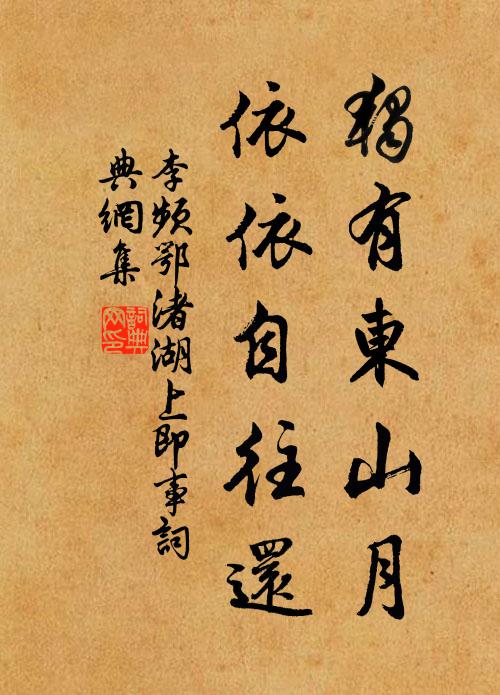 獨有東山月
依依自往還
李頻鄂渚湖上即事詞
典網集
詞典
网印